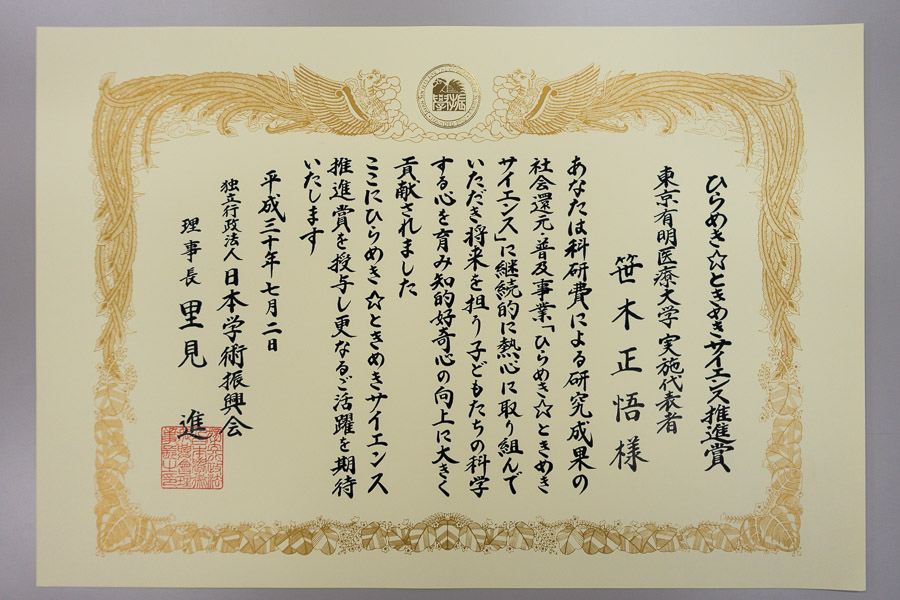 ひらめき☆ときめきサイエンス推進賞
東京有明医療大学 実施代表者
笹木正悟様
あなたは科研費による研究成果の
社会還元・普及事業「ひらめき☆ときめき
サイエンス」に継続的に熱心に取り組んで
いただき将来を担う子どもたちの科学
する心を育み知的好奇心の向上に大きく
貢献されました
ここにひらめき☆ときめきサイエンス
推進賞を授与し更なるご活躍を期待
いたします
平成三十年七月二日
独立行政法人日本学術振興会
理事長 里見 進